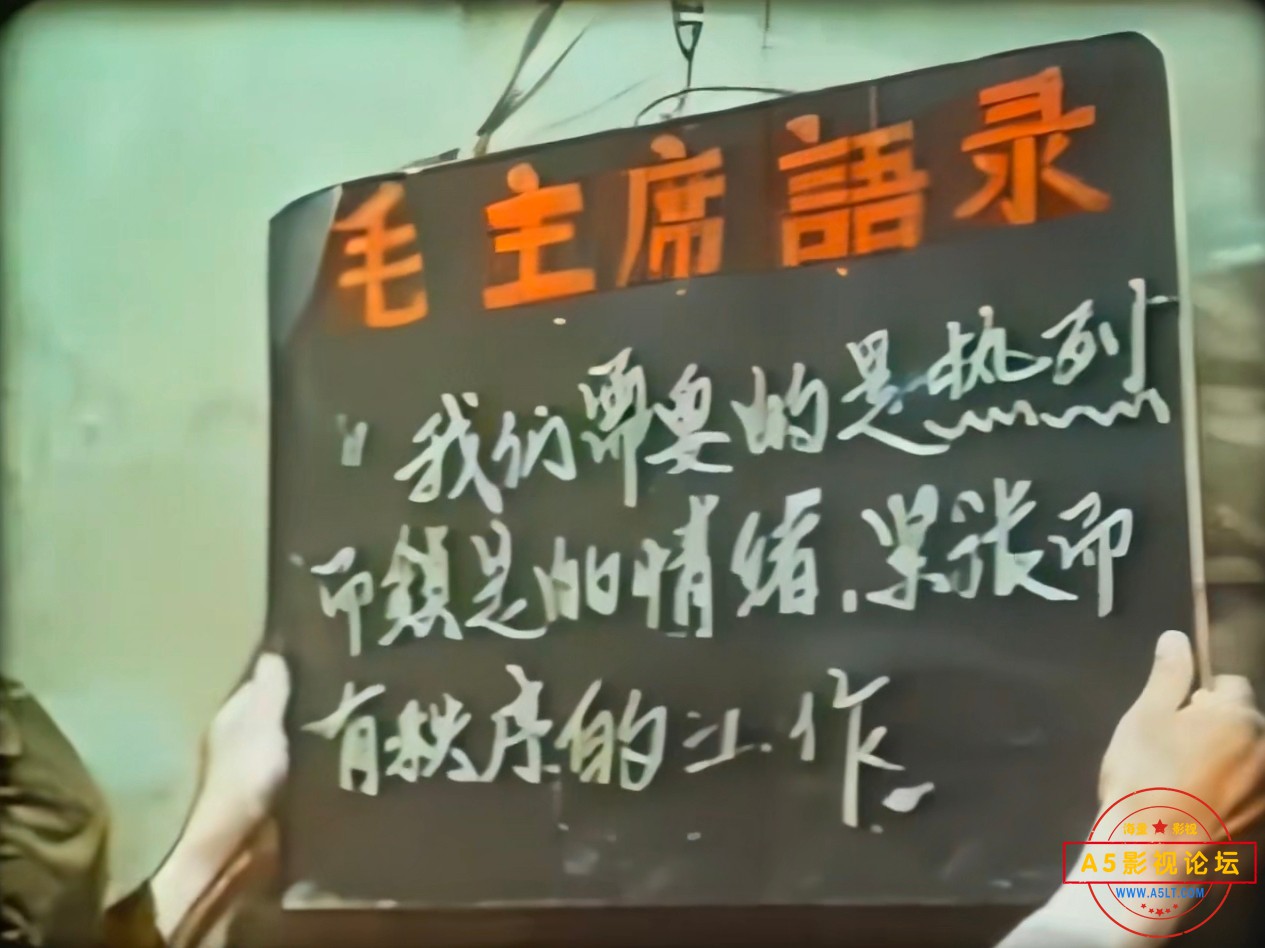 毛主席語录
"我们需要的是热烈
而鎮定的情绪.紧张而
有秩序的工作。
海量★影视
A5影视论坛
WWW.A5LT.COM